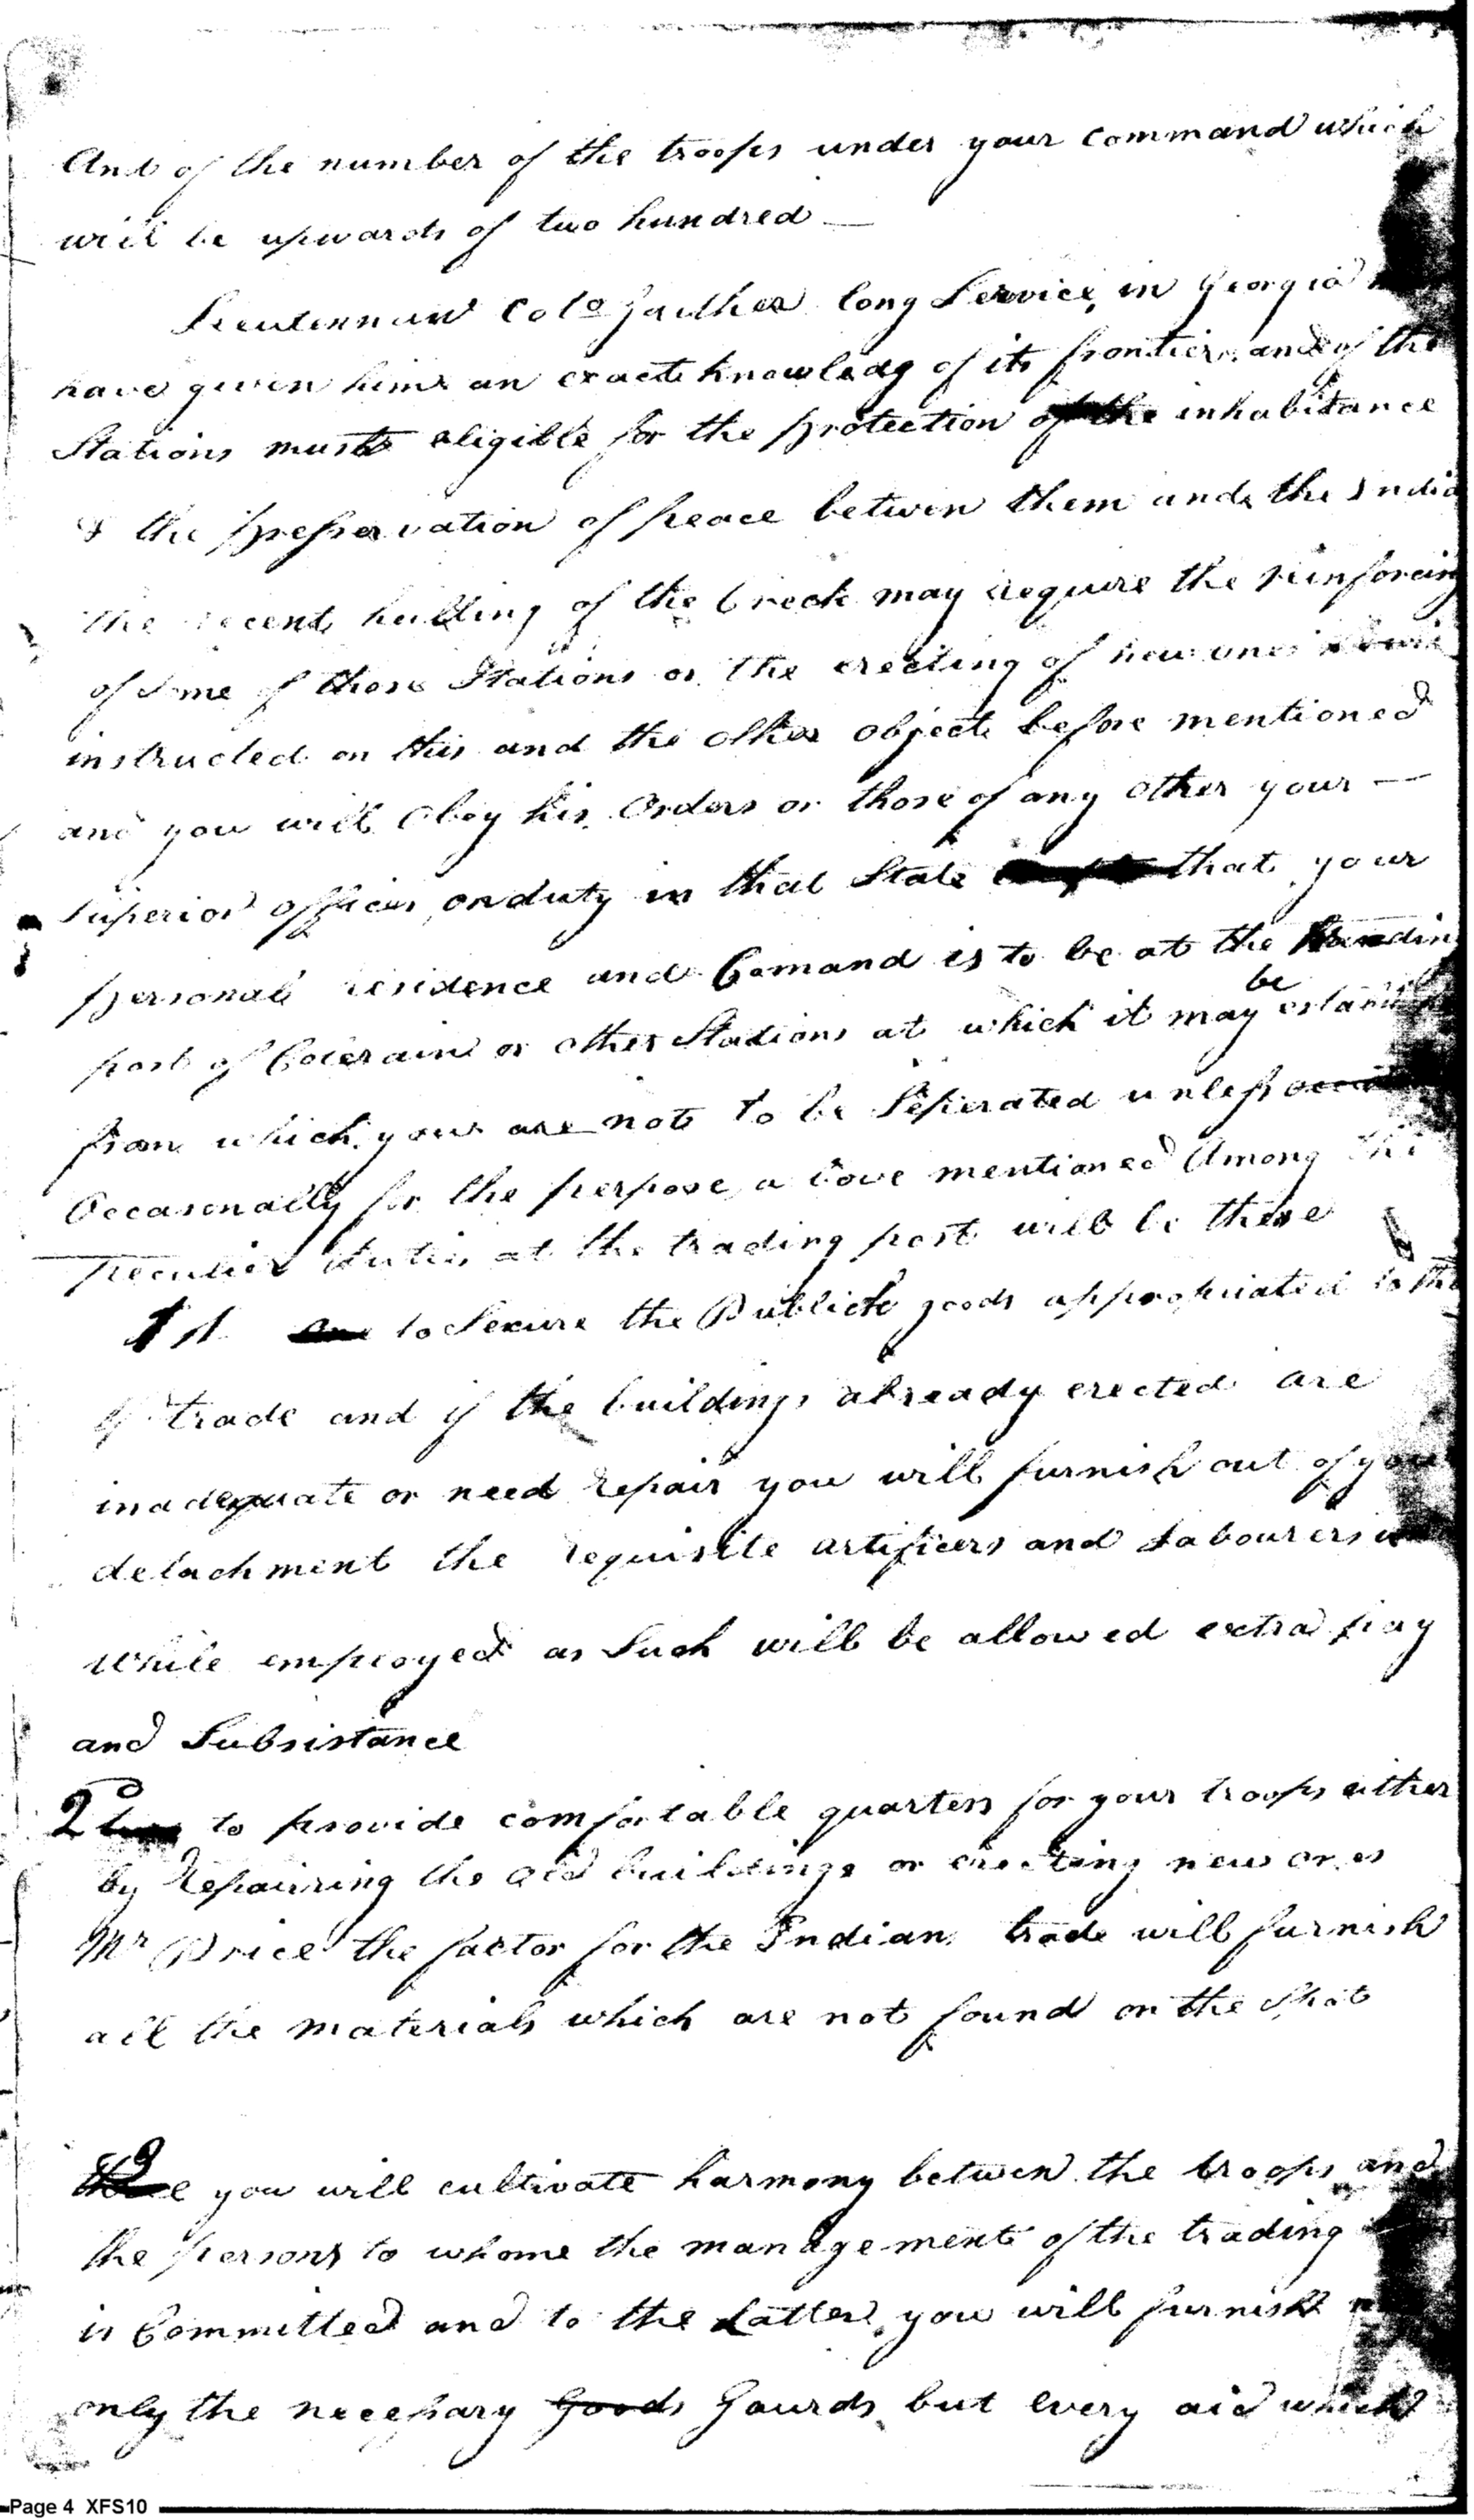 And of the number of the troops under your Command which
will be upwards of two hundred —
Lieutennant Colo Gaither long Service, in Georgia
have given him an exacte knowledg of its frontier, and of the
Stations muste eligible for the protection of the inhabitance
& the preservation of peace between them and the Indi
The recent killing of the Creek may require the reinforcing
of Some of those Stations or the erecting of new ones
instructed on this and the other objects before mentioned
and you will Obey his Orders or those of any other your —
Superior officer on duty in that State that your
personal residence and Comand is to be at the
post of Colerain or other Stations at which it may be establish
from which you are not to be Seperated unless
Occasonally for the perpose above mentioned Among the
peculier duties at the trading post will be these
1st to Secure the Publick goods appropriated to the
of trade and if the buildings already erected are
inadequate or need repair you will furnish out of your
detachment the requisite artificers and Labourers
while employed as Such will be allowed extra pay
and Subsistance
2d to provide comfortable quarters for your troops either
by Repairing the old buildings or erecting new ones
Mr Price the factor for the Indian trade will furnish
all the materials which are not found on the Spot
3 you will cultivate harmony between the troops and
the persons to whome the management of the trading
is Committed and to the Latter you will furnish
only the necessary Goods Gaurds but every aid which
Page 4 XFS10